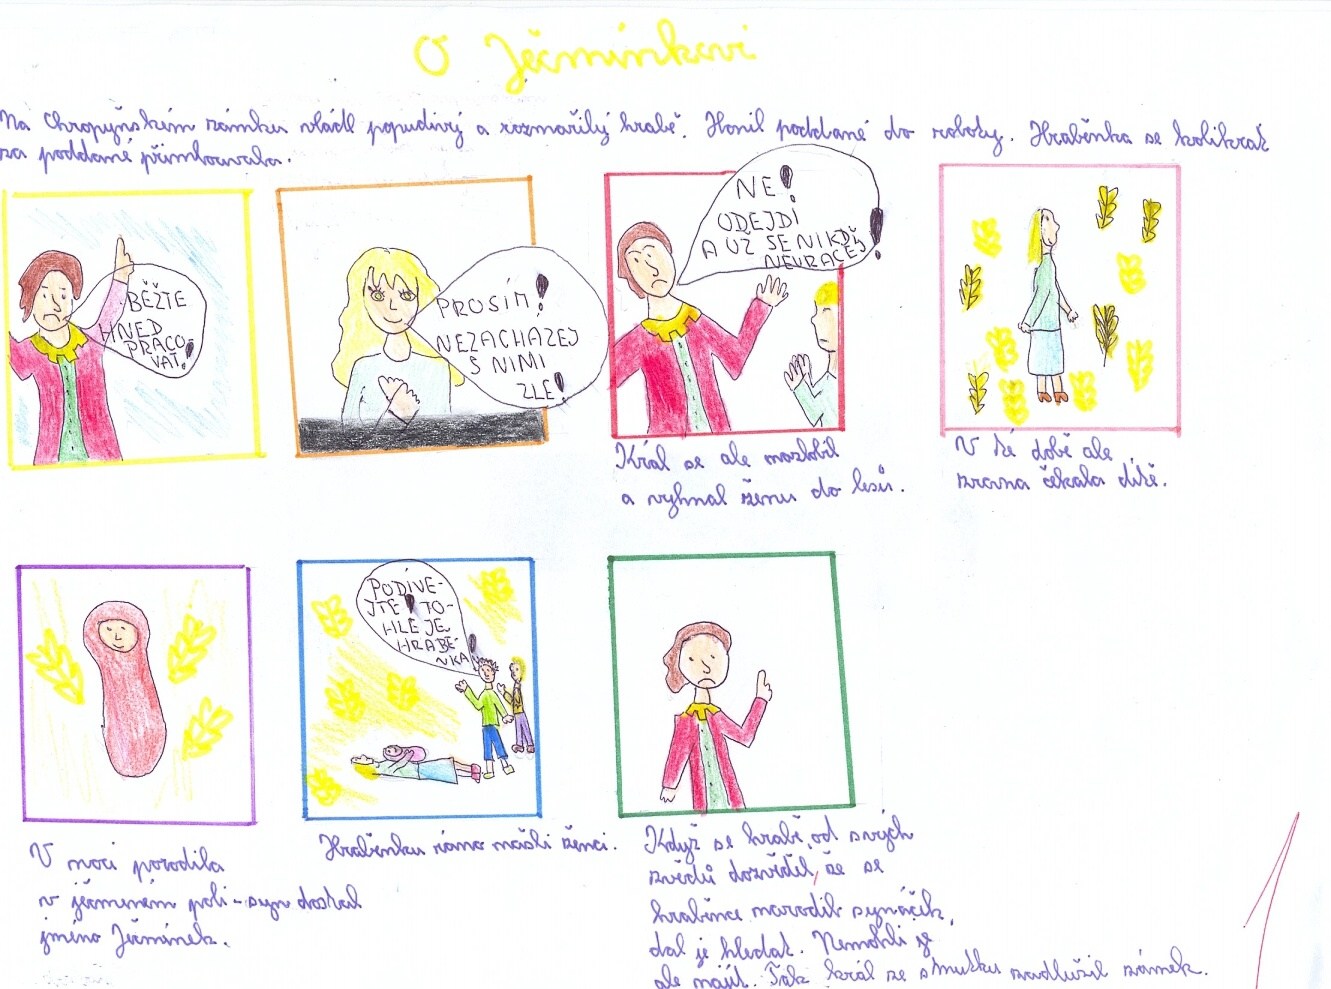 O Ječmínkovi
Na Chropyňském zámku vládl popudivý a rozmařilý hrabě. Honil poddané do roboty. Hraběnka se kolikrát
za poddané přimlouvala.
BĚŽTE
HNED
PRACO-
VAT!
PROSÍM!
NEZACHAZEJ
S NIMI
ZLE!
NE!
ODEJDI
A UZ SE NIKDY
NEVRACEJ!
Král se ale rozzlobil
a vyhnal ženu do lesů.
V té době ale
zrovna čekala dítě.
V noci porodila
v ječmeném poli - syn dostal
jméno Ječmínek.
PODÍVE-
JTE! TO-
HLE JE
HRABĚ-
NKA!
Hraběnku ráno našli ženci.
Když se hrabě, od svých
zvědů dozvěděl, že se
hraběnce narodil synáček,
dal je hledat. Nemohli je
ale najít. Tak král ze smutku zadlužil zámek.
1